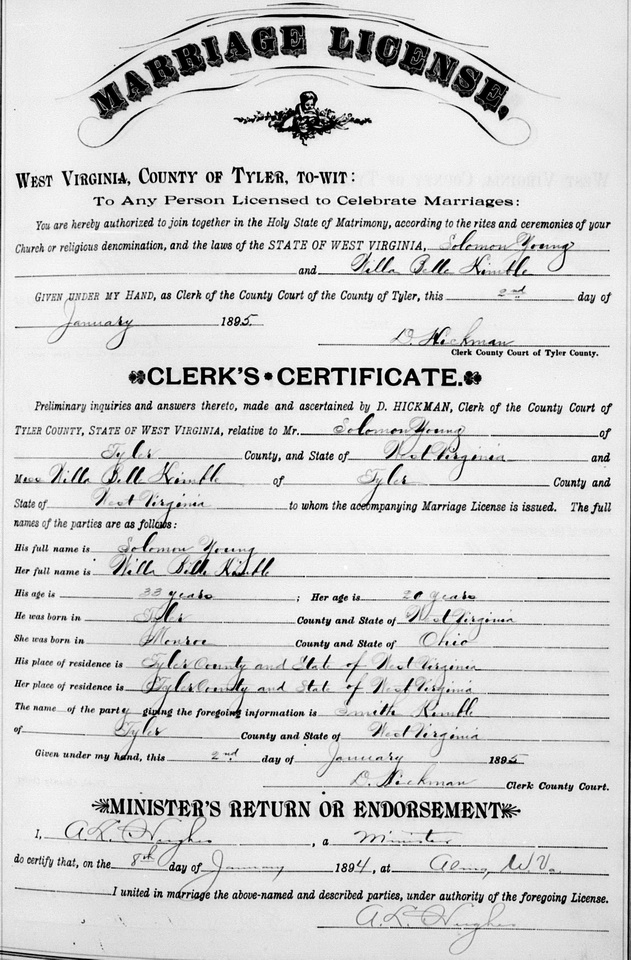 MARRIAGE LICENSE.
WEST VIRGINIA, COUNTY OF TYLER, TO-WIT:
To Any Person Licensed to Celebrate Marriages:
You are hereby authorized to join together in the Holy State of Matrimony, according to the rites and ceremonies of your
Church or religious denomination, and the laws of the STATE OF WEST VIRGINIA, Solomon Young
and Willa Belle Kimble
GIVEN UNDER MY HAND, as Clerk of the County Court of the County of Tyler, this 2nd day of
January 1895.
D. Hickman
Clerk County Court of Tyler County.
CLERK'S CERTIFICATE.
Preliminary inquiries and answers thereto, made and ascertained by D. HICKMAN, Clerk of the County Court of
TYLER COUNTY, STATE OF WEST VIRGINIA, relative to Mr. Solomon Young of
Tyler County, and State of West Virginia and
Miss Willa Belle Kimble of Tyler County and
State of West Virginia to whom the accompanying Marriage License is issued. The full
names of the parties are as follows:
His full name is Solomon Young
Her full name is Willa Belle Kimble
His age is 33 years ; Her age is 20 years
He was born in Tyler County and State of West Virginia
She was born in Monroe County and State of Ohio
His place of residence is Tyler County and State of West Virginia
Her place of residence is Tyler County and State of West Virginia
The name of the party giving the foregoing information is Smith Kimble
of Tyler County and State of West Virginia
Given under my hand, this 2nd day of January 1895
D. Hickman Clerk County Court.
MINISTER'S RETURN OR ENDORSEMENT
I, A. L. Hughes, a Minister
do certify that, on the 8th day of January 1894, at Alma, W. Va
I united in marriage the above-named and described parties, under authority of the foregoing License.
A. L. Hughes